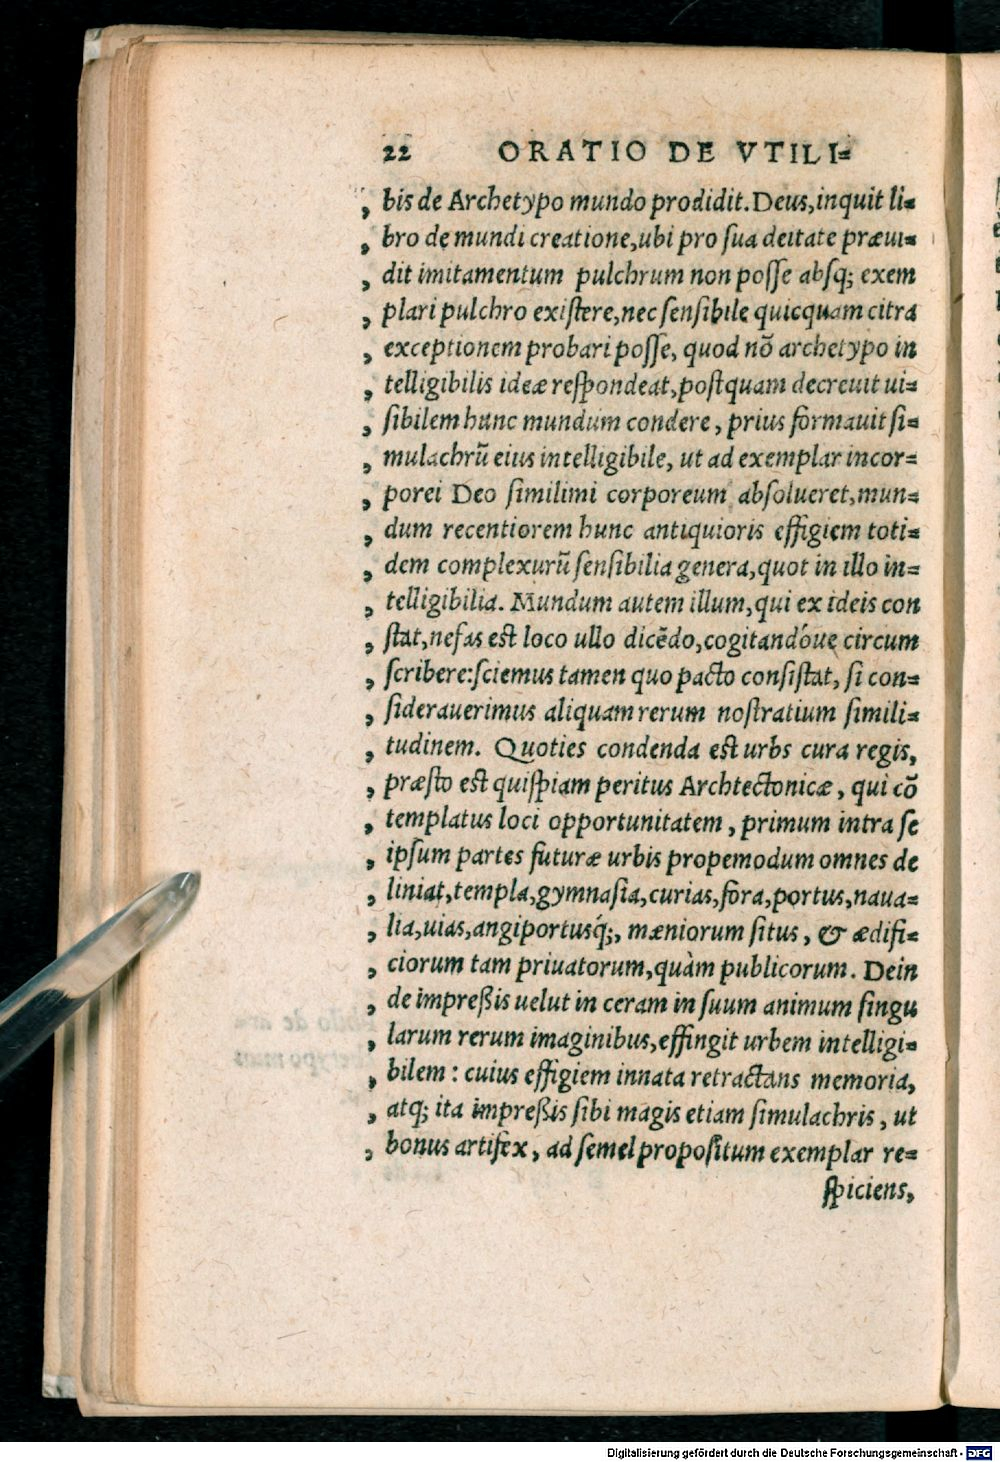 22 ORATIO DE VTILI=
, bis de Archetypo mundo prodidit. Deus, inquit li=
, bro de mundi creatione, ubi pro sua deitate præui=
, dit imitamentum pulchrum non posse absq; exem
, plari pulchro existere, nec sensibile quicquam citra
, exceptionem probari posse, quod nõ archetypo in
, telligibilis ideæ respondeat, postquam decreuit ui=
, sibilem hunc mundum condere, prius formauit si=
, mulachrũ eius intelligibile, ut ad exemplar incor=
, porei Deo simillimi corporeum absolueret, mun=
, dum recentiorem hunc antiquioris effigiem toti=
, dem complexurũ sensibilia genera, quot in illo in=
, telligibilia. Mundum autem illum, qui ex ideis con
, stat, nefas est loco ullo dicẽdo, cogitandóue circum
, scribere: sciemus tamen quo pacto consistat, si con=
, siderauerimus aliquam rerum nostratium simili=
, tudinem. Quoties condenda est urbs cura regis,
, præsto est quispiam peritus Archtectonicæ, qui cõ
, templatus loci opportunitatem, primum intra se
, ipsum partes futuræ urbis propemodum omnes de
, liniat, templa, gymnasia, curias, fora, portus, naua=
, lia, uias, angiportusq́;, mæniorum situs, & ædifi=
, ciorum tam priuatorum, quàm publicorum. Dein
, de impreßis uelut in ceram in suum animum singu
, larum rerum imaginibus, effingit urbem intelligi=
, bilem: cuius effigiem innata retractans memoria,
, atq; ita impreßis sibi magis etiam simulachris, ut
, bonus artifex, ad semel propositum exemplar re=
spiciens,
Digitalisierung gefördert durch die Deutsche Forschungsgemeinschaft - DFG